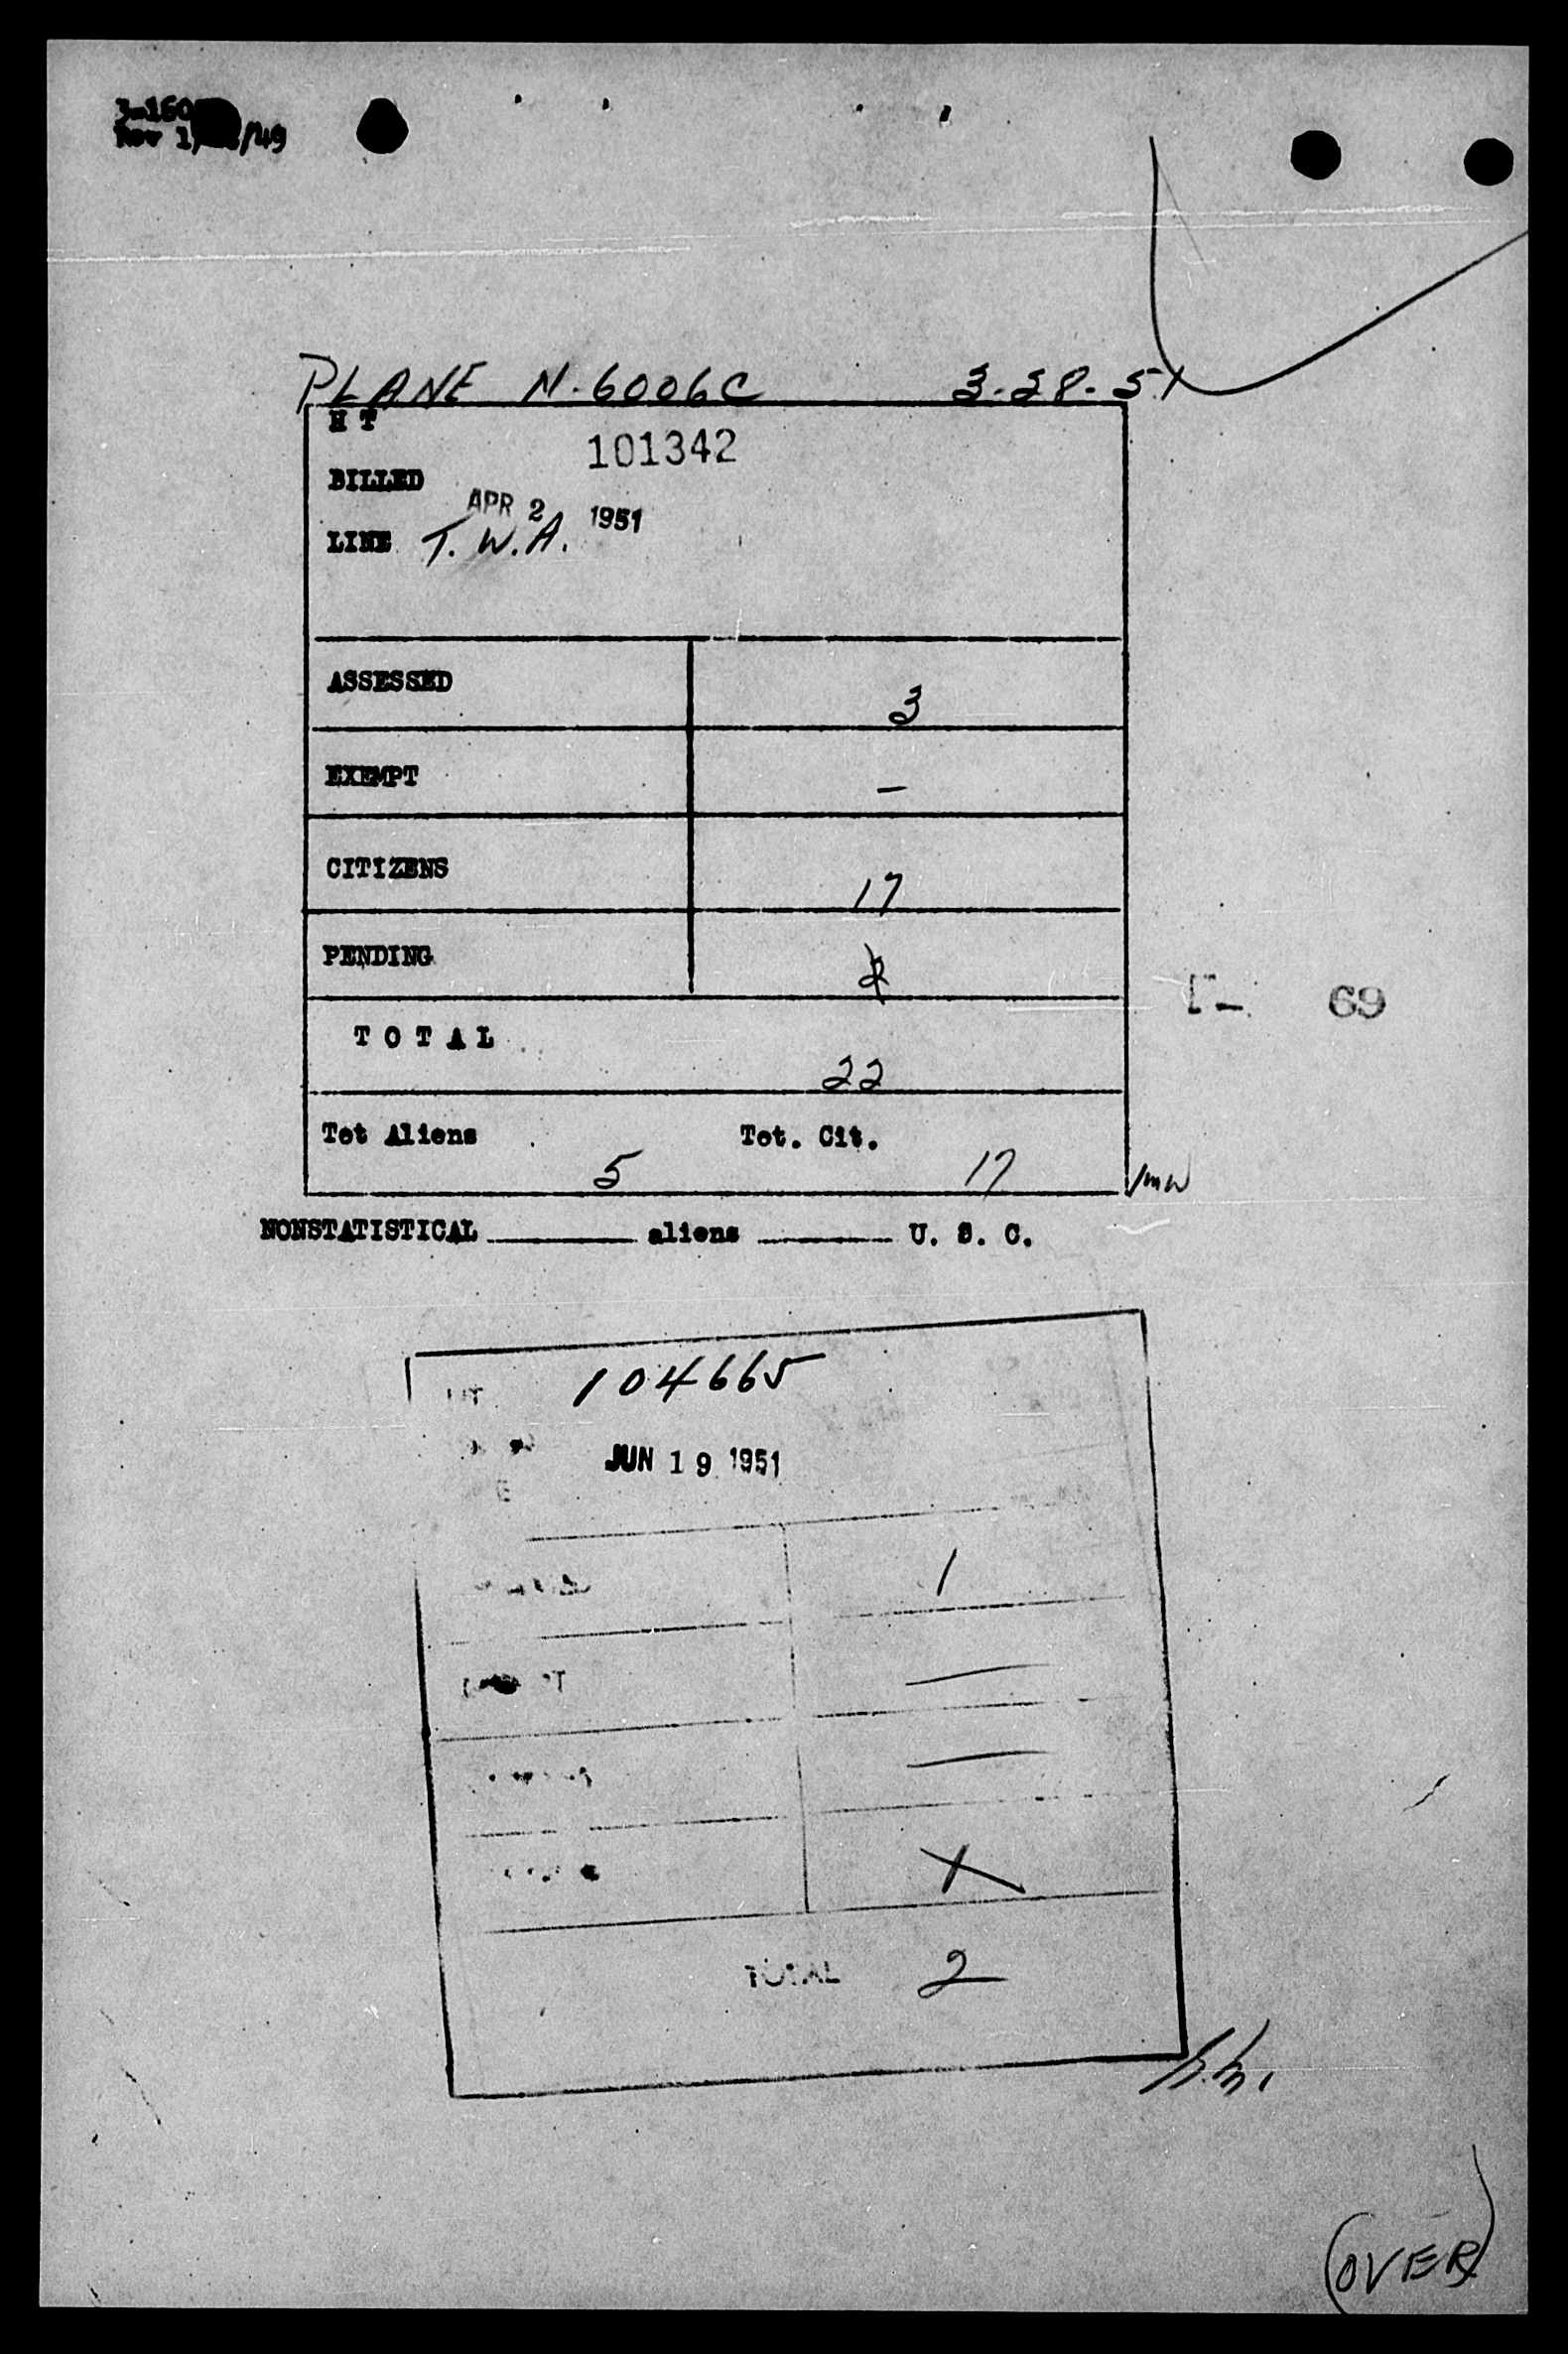 3-160
Rev 1/49
PLANE N-6006C 3-28-51
H T 101342
BILLED
APR 2 1951
LINE T.W.A.
ASSESSED 3
EXEMPT –
CITIZENS 17
PENDING 2
TOTAL 22
69
Tot Aliens 5 Tot. Cit. 17
/mw
NONSTATISTICAL ______ aliens ______ U. S. C.
HT 104665
JUN 19 1951
1
—
—
X
TOTAL 2
(OVER)